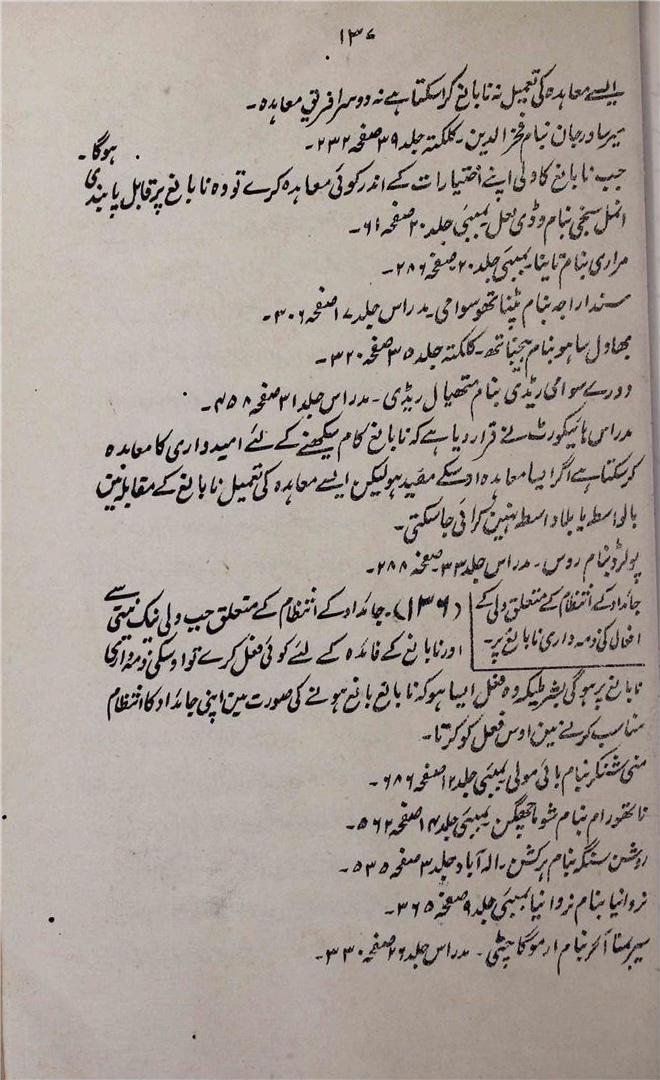 ۱۳۷
ایسے معاہدہ کی تعمیل نہ نابالغ کراسکتا ہے نہ دوسرا فریق معاہدہ۔
میر سادر جان بنام فخر الدین۔ کلکتہ جلد ۳۹ صفحہ ۲۳۲۔
جب نابالغ کا ولی اپنے اختیارات کے اندر کوئی معاہدہ کرے تو وہ نابالغ پر قابل پابندی ہوگا۔
بنام بمبئی جلد ۲۰ صفحہ ۶۱۔
مراری بنام تایانا۔ بمبئی جلد ۲۰ صفحہ ۲۸۶۔
سندا راجہ بنام پٹناتھو سوامی۔ مدراس جلد ۱۷ صفحہ ۳۰۶۔
بھاول ساہو بنام بیجناتھ۔ کلکتہ جلد ۳۵ صفحہ ۳۲۰۔
دورے سوامی ریڈی بنام متھیال ریڈی۔ مدراس جلد ۳۱ صفحہ ۴۵۸۔
مدراس ہائیکورٹ نے قرار دیا ہے کہ نابالغ کام سیکھنے کے لئے امیدواری کا معاہدہ
کرسکتا ہے اگر ایسا معاہدہ اوسکے مفید ہو لیکن ایسے معاہدہ کی تعمیل نابالغ کے مقابلہ میں
بالواسطہ یا بلاواسطہ نہین کرائی جاسکتی۔
پولرڈ بنام روس۔ مدراس جلد ۳۳ صفحہ ۲۸۸۔
جائداد کے انتظام کے متعلق ولی کے
افعال کی ذمہ داری نابالغ پر۔
(۱۳۶)۔ جائداد کے انتظام کے متعلق جب ولی نیک نیتی سے
اور نابالغ کے فائدہ کے لئے کوئی فعل کرے تو اوسکی ذمہ داری
نابالغ پر ہوگی بشرطیکہ وہ فعل ایسا ہو کہ نابالغ بالغ ہونے کی صورت مین اپنی جائداد کا انتظام
مناسب کرنے مین اوس فعل کو کرتا۔
منی شنکر بنام بائی مولی بمبئی جلد ۱۲ صفحہ ۶۸۶۔
ناتھورام بنام شوما چھگن۔ بمبئی جلد ۱۴ صفحہ ۵۶۲۔
روشن سنگہ بنام ہرکشن۔ الہ آباد جلد ۳ صفحہ ۵۳۵۔
نروانیا بنام نروانیا بمبئی جلد ۹ صفحہ ۳۶۵۔
بنام ارموگا چٹی۔ مدراس جلد ۲۶ صفحہ ۳۳۰۔